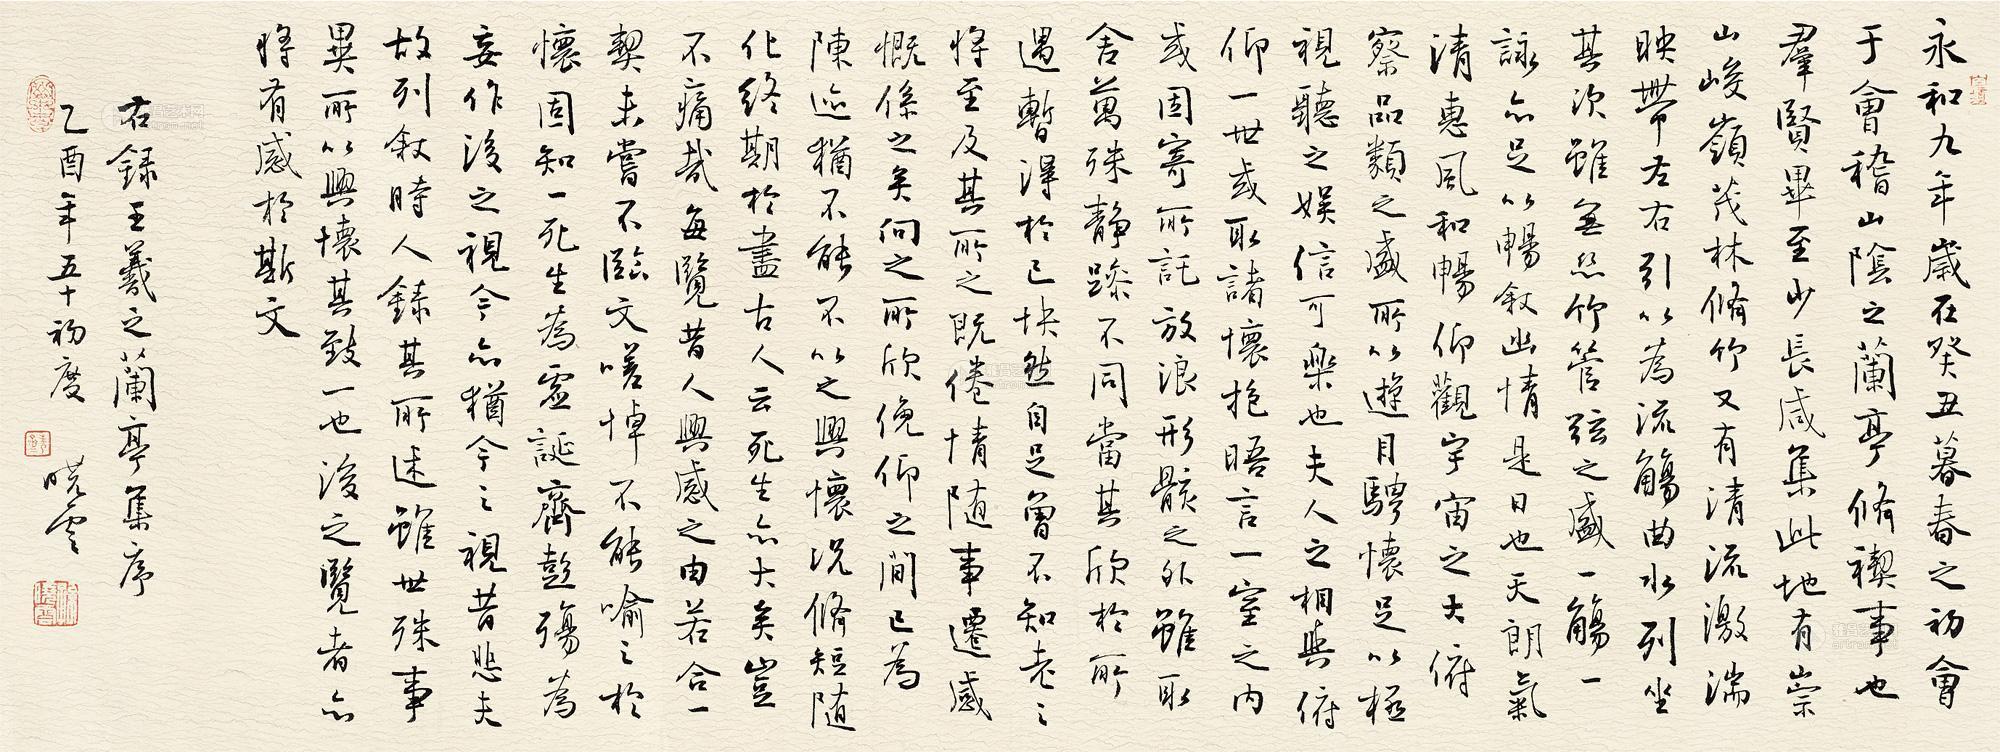 永和九年歲在癸丑暮春之初會
于會稽山陰之蘭亭脩禊事也
羣賢畢至少長咸集此地有崇
山峻嶺茂林脩竹又有清流激湍
映帶左右引以為流觴曲水列坐
其次雖無絲竹管弦之盛一觴一
詠亦足以暢敘幽情是日也天朗氣
清惠風和暢仰觀宇宙之大俯
察品類之盛所以遊目騁懷足以極
視聽之娛信可樂也夫人之相與俯
仰一世或取諸懷抱晤言一室之内
或因寄所託放浪形骸之外雖取
舍萬殊静躁不同當其欣於所
遇暫得於己快然自足曾不知老之
将至及其所之既倦情随事遷感
慨係之矣向之所欣俛仰之間已為
陳迹猶不能不以之興懷況脩短随
化終期於盡古人云死生亦大矣豈
不痛哉每覽昔人興感之由若合一
契未嘗不臨文嗟悼不能喻之於
懷固知一死生為虛誕齊彭殤為
妄作後之視今亦猶今之視昔悲夫
故列敘時人録其所述雖世殊事
異所以興懷其致一也後之覽者亦
将有感於斯文
右録王羲之蘭亭集序
乙酉年五十初度 曉雲